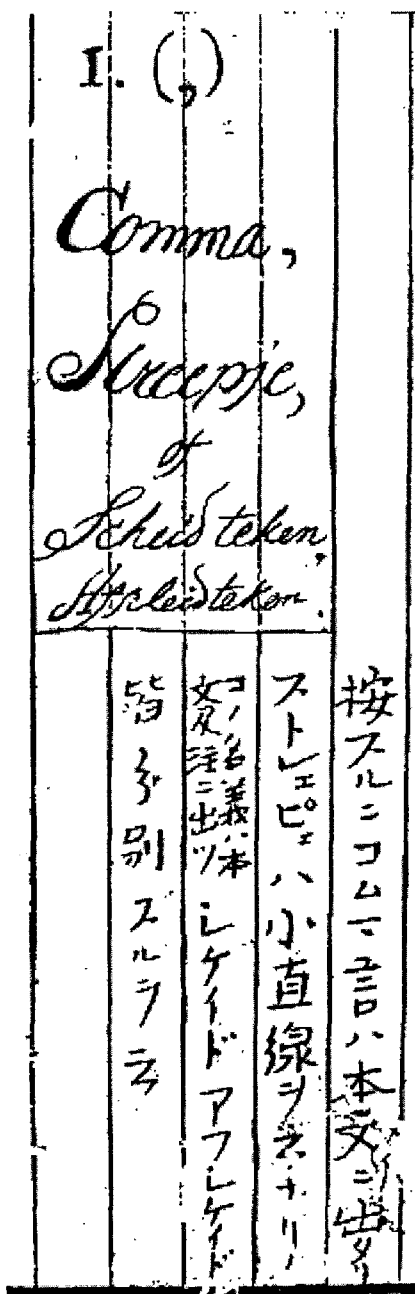 I. (,)
Comma,
Streepje,
of
Scheid teken.
Afscheidteken.
按スルニコムマ言ハ本文ニ出タリ
ストレェピェハ小直線ヲ云ナリ
コノ名義ハ本
文及注ニ出ツ
レケイド アフレケイド
皆分別スルヲ云